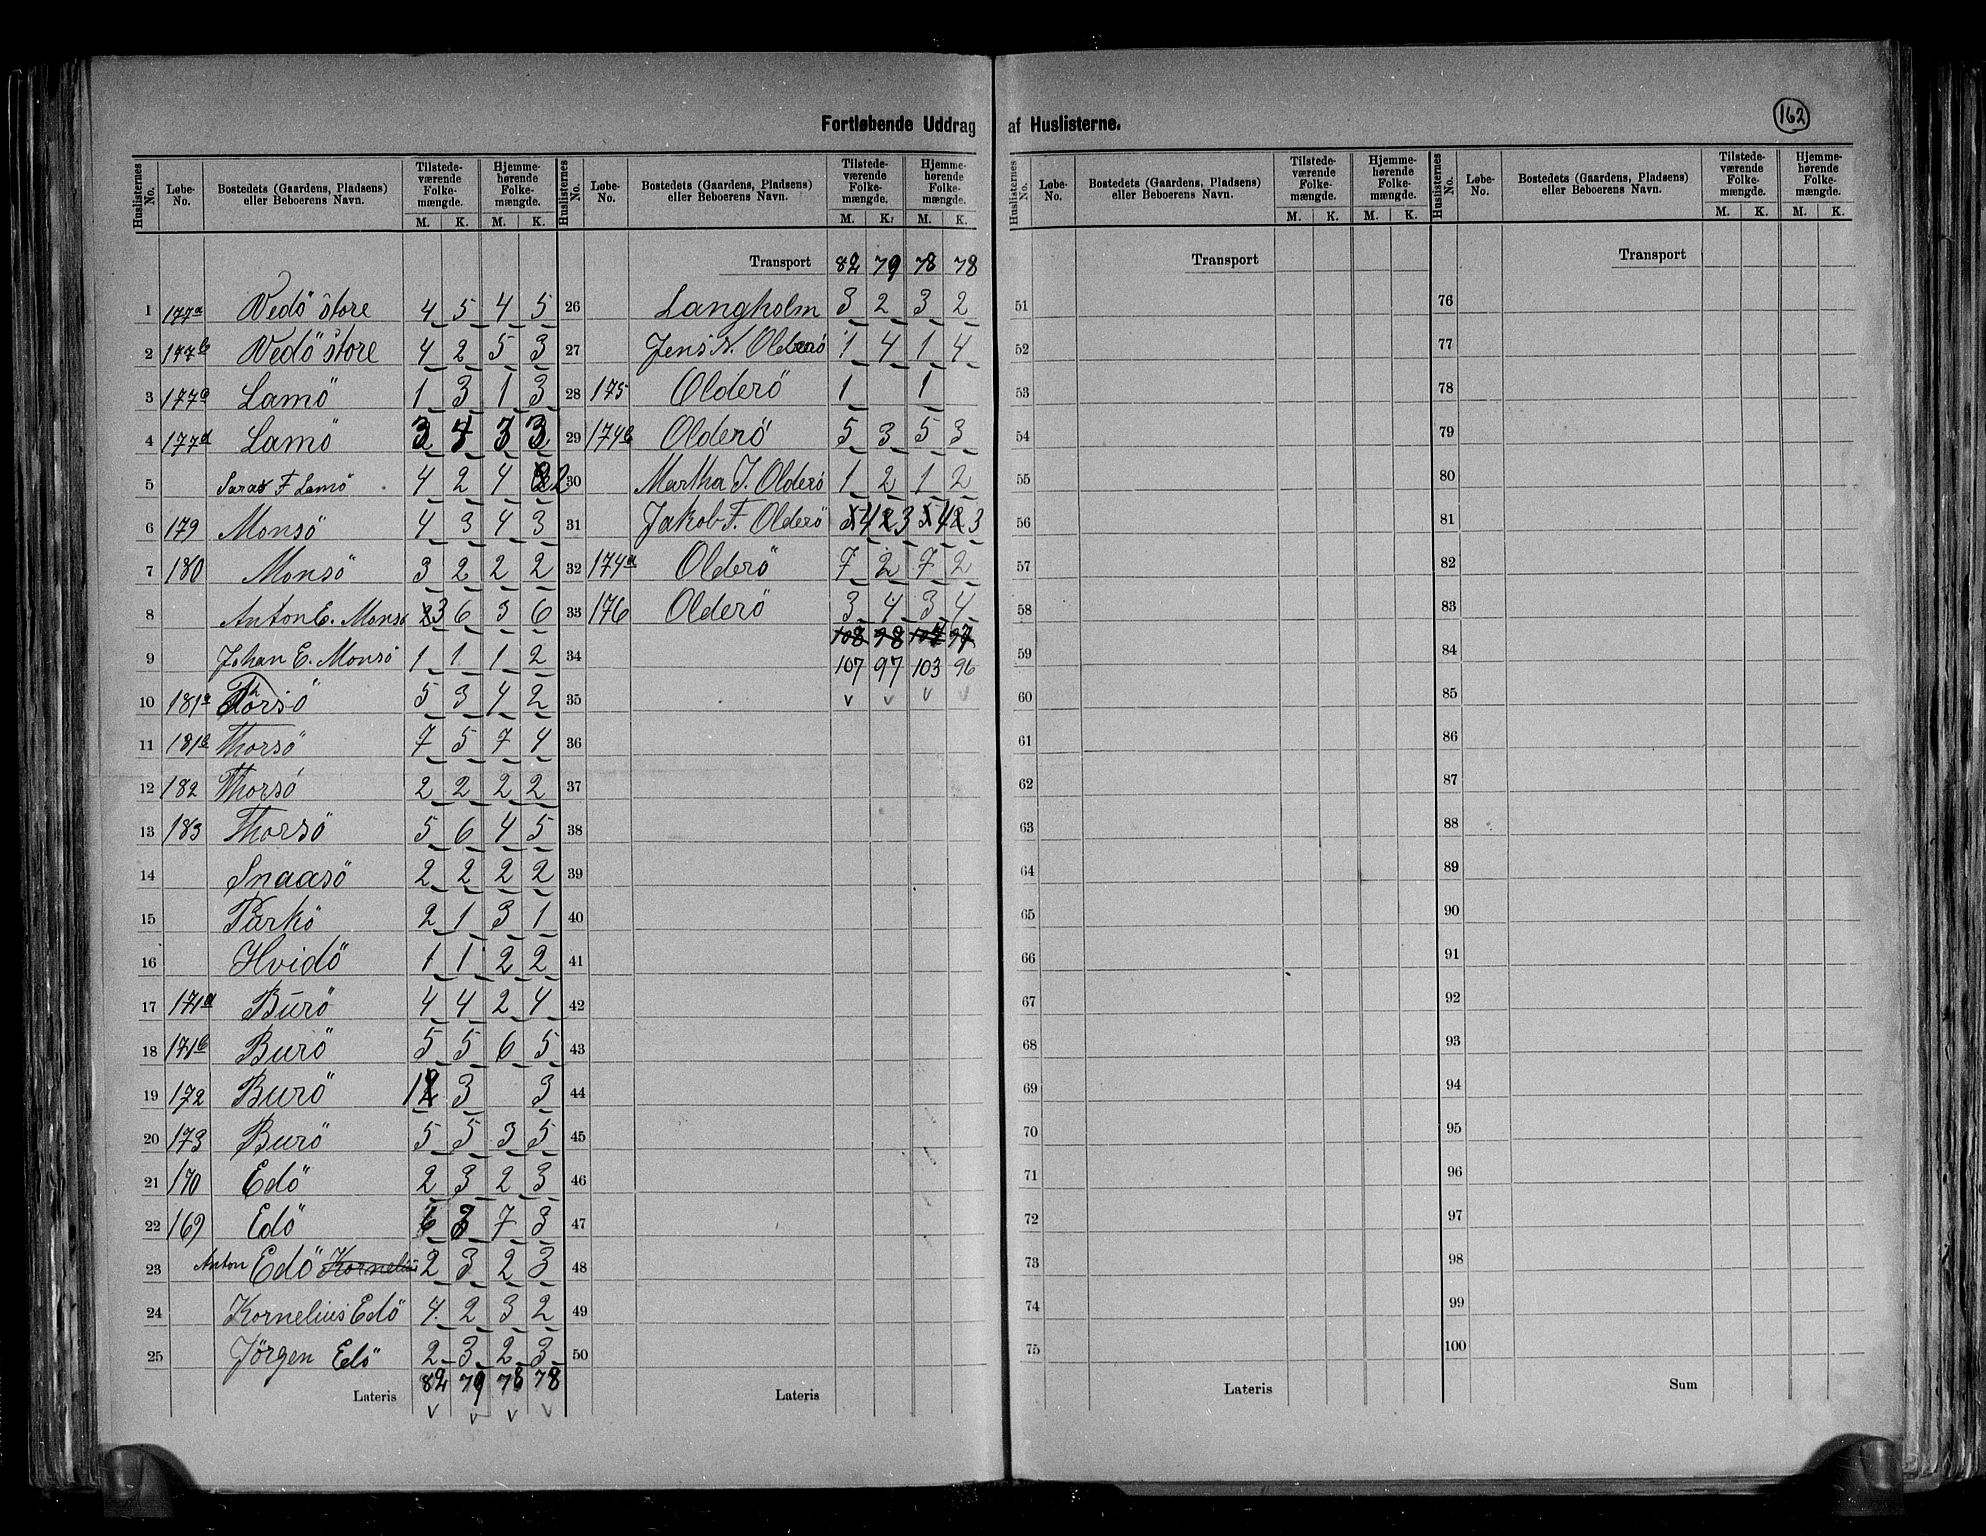 162
Fortløbende Uddrag af Huslisterne.
Huslisternes No. Løbe-No. Bostedets (Gaardens, Pladsens) eller Beboerens Navn. Tilstedeværende Folkemængde. M. K. Hjemmehørende Folkemængde. M. K.
1 177a Vedö store 4 5 4 5
2 177b Vedö store 4 2 5 3
3 177c Lamö 1 3 1 3
4 177d Lamö 3 4 3 3
5 Saras F Lamö 4 2 4 2
6 179 Monsö 4 3 4 3
7 180 Monsö 3 2 2 2
8 Anton E. Monsö 3 6 3 6
9 Johan E. Monsö 1 1 1 2
10 181a Thorsö 5 3 4 2
11 181b Thorsö 7 5 7 4
12 182 Thorsö 2 2 2 2
13 183 Thorsö 5 6 4 5
14 Snaasö 2 2 2 2
15 Purkö 2 1 3 1
16 Hvidö 1 1 2 2
17 171a Burö 4 4 2 4
18 171b Burö 5 5 6 5
19 172 Burö 1 3 3
20 173 Burö 5 5 3 5
21 170 Edö 2 3 2 3
22 169 Edö 6 3 7 3
23 Anton Edö Kornelius 2 3 2 3
24 Kornelius Edö 4 2 3 2
25 Jörgen Edö 2 3 2 3
Lateris 82 79 78 78
v v v v
Huslisternes No. Løbe-No. Bostedets (Gaardens, Pladsens) eller Beboerens Navn. Tilstedeværende Folkemængde. M. K. Hjemmehørende Folkemængde. M. K.
Transport 82 79 78 78
26 Langholm 3 2 3 2
27 Jens N. Olderö 1 4 1 4
28 175 Olderö 1 1
29 174b Olderö 5 3 5 3
30 Martha J. Olderö 1 2 1 2
31 Jakob F. Olderö 5 4 2 3 5 4 2 3
32 174a Olderö 7 2 7 2
33 176 Olderö 3 4 3 4
108 98 104 97
34 107 97 103 96
35 v v v v
36
37
38
39
40
41
42
43
44
45
46
47
48
49
50
Lateris
Huslisternes No. Løbe-No. Bostedets (Gaardens, Pladsens) eller Beboerens Navn. Tilstedeværende Folkemængde. M. K. Hjemmehørende Folkemængde. M. K.
Transport
51
52
53
54
55
56
57
58
59
60
61
62
63
64
65
66
67
68
69
70
71
72
73
74
75
Lateris
Huslisternes No. Løbe-No. Bostedets (Gaardens, Pladsens) eller Beboerens Navn. Tilstedeværende Folkemængde. M. K. Hjemmehørende Folkemængde. M. K.
Transport
76
77
78
79
80
81
82
83
84
85
86
87
88
89
90
91
92
93
94
95
96
97
98
99
100
Sum